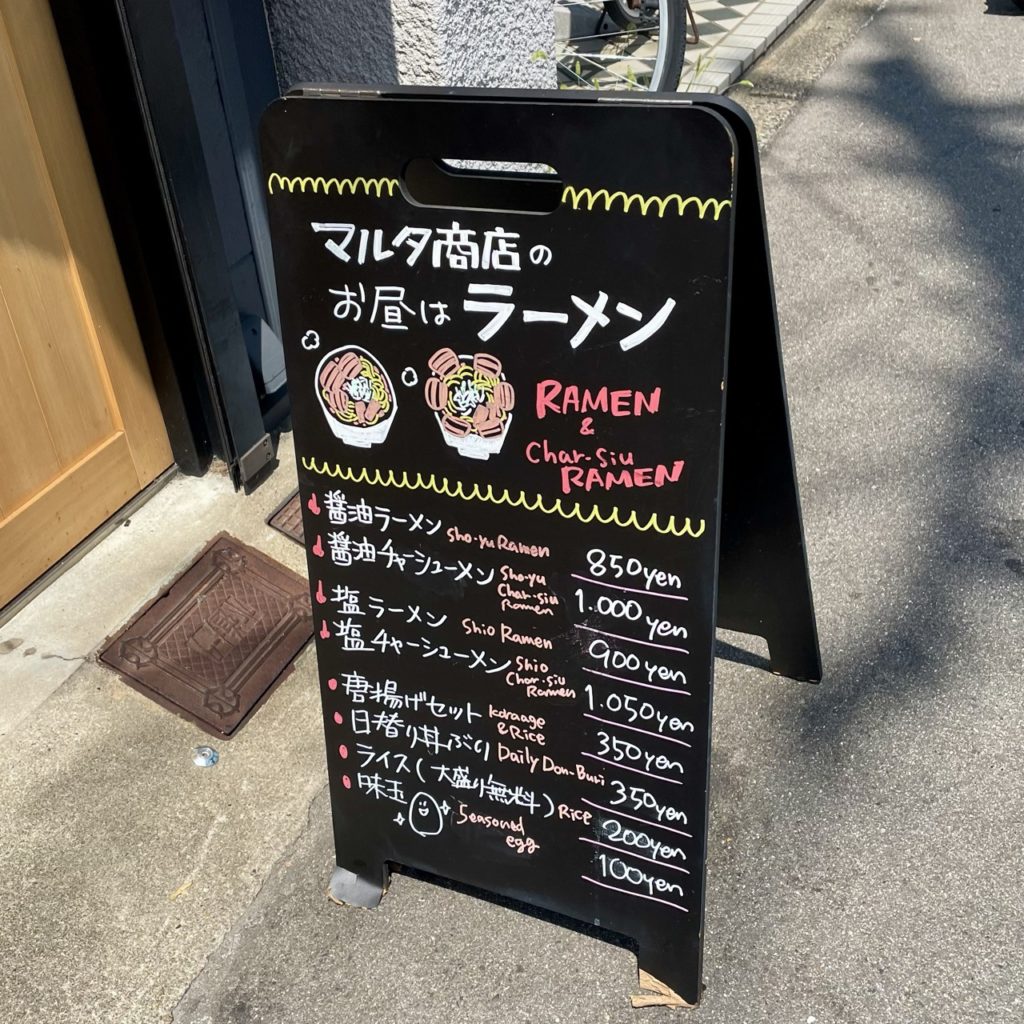 マルタ商店の
お昼はラーメン
RAMEN
&
Char-Siu
RAMEN
醤油ラーメン Sho-yu Ramen 850yen
醤油チャーシューメン Sho-yu Char-siu Ramen 1.000yen
塩ラーメン Shio Ramen 900yen
塩チャーシューメン Shio Char-siu Ramen 1.050yen
唐揚げセット Karaage & Rice 350yen
日替り丼ぶり Daily Don-Buri 350yen
ライス(大盛り無料) Rice 200yen
味玉 Seasoned egg 100yen